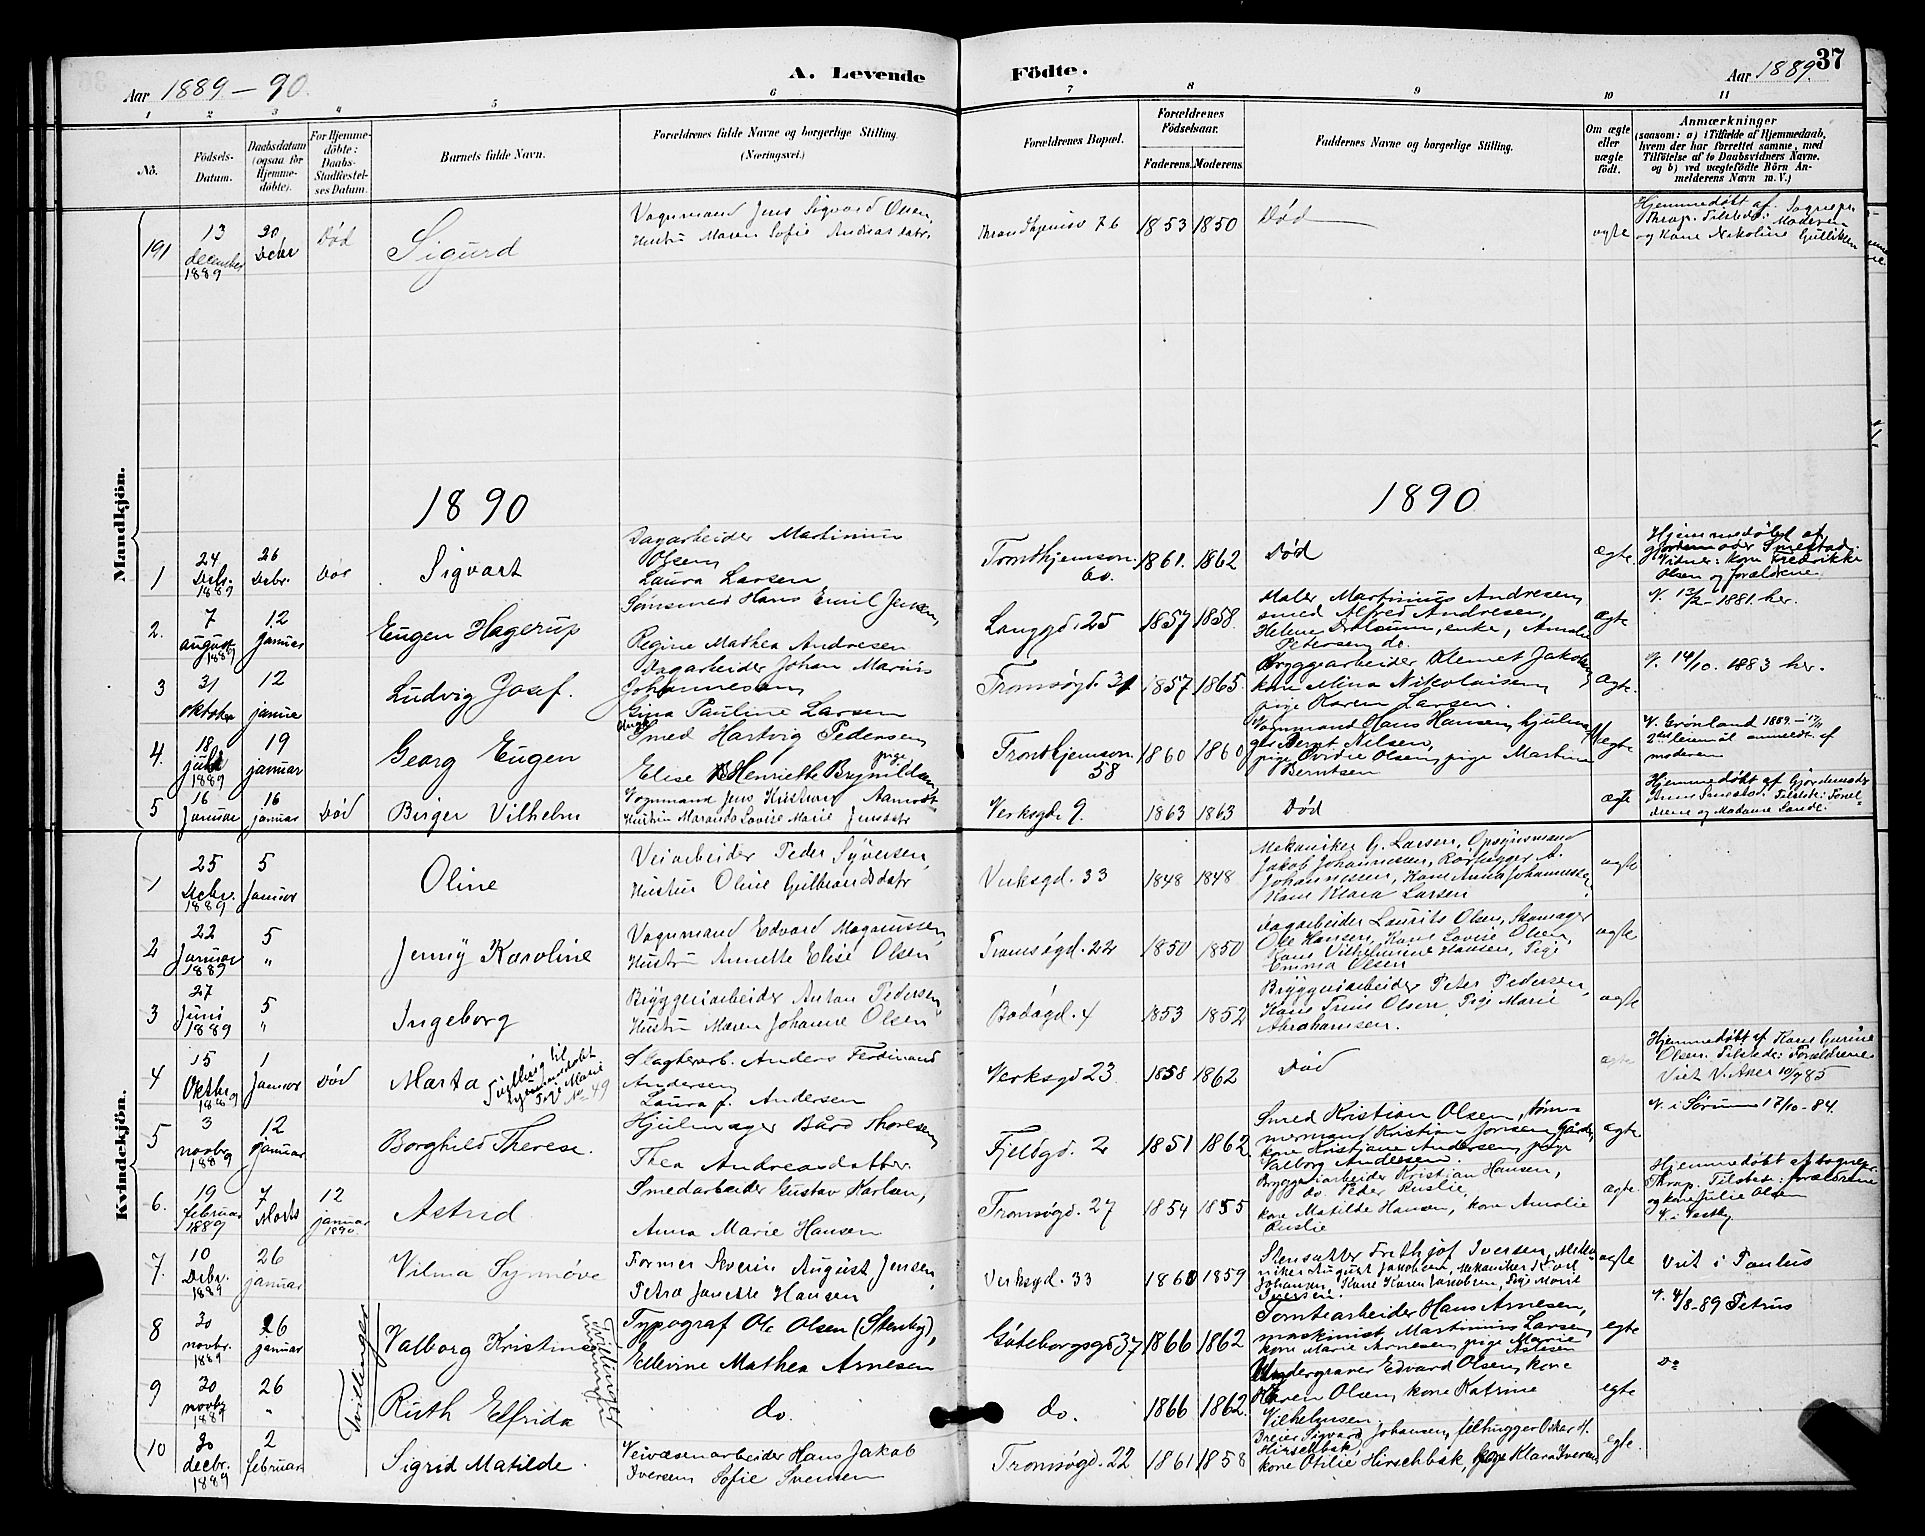 Aar 1889-90.
A. Levende Födte.
Aar 1889.
37
1 2 3 4 5 6 7 8 9 10 11
No.
Födsels-Datum.
Daabsdatum (ogsaa for Hjemme-döbte).
For Hjemme-döbte: Daabs-Stadfæstel-ses Datum.
Barnets fulde Navn.
Forældrenes fulde Navne og borgerlige Stilling.
(Næringsvei.)
Forældrenes Bopæl.
Forældrenes Födselsaar.
Faderens. Moderens.
Faddernes Navne og borgerlige Stilling.
Om ægte eller uægte födt.
Anmærkninger
(saasom: a) i Tilfælde af Hjemmedaab, hvem der har forrettet samme, med Tilföielse af to Daabsvidners Navne. og b) ved uægtefödte Börn An-melderens Navn m. V.)
Mandkjön.
191 13 december 1889 30 Decbr Död Sigurd
Vognmand Jens Sigvard Olsen,
Hustru Maren Sofie Andreasdatr.
76 1853 1850 Död ægte
Hjemmedøbt af Sognepr.
Thrap. Tilstede: Moderen
og Kone Nikoline Gulliksen
1890
1890
1 24 Decbr. 1889 26 Decbr. Död Sigvart
Dagarbeider Martinius
Olsen
Laura Larsen
Trondhjemsvn. 60. 1861. 1862 Död ægte
Vidner: Kone Fredrikke
Olsen og forældrene
2. 7 august 1889 12 Januar Eugen Hagerup
Sømsmed Hans Emil Jensen,
Regine Mathea Andresen
Langgd. 25 1857 1858.
Maler Martinius Andresen,
smed Alfred Andresen,
enke, Amalie
Petersen do.
ægte
V. 13/2-1881. her.
3 31 oktober 12 januar Ludvig Josef.
Dagarbeider Johan Marius
Johannesen,
Gina Pauline Larsen
Tromsøgd. 31 1857 1865.
Bryggearbeider Klemet Jakobsen,
kone Mina Nikolaisen,
pige Karen Larsen.
ægte.
V. 14/10. 1883 her.
4. 18 juli 1889 19 januar Georg Eugen
Smed Hartvig Pedersen,
pige
Elise Henriette Brynildsen
Trondhjemsvn. 58 1860 1860
Vognmand Hans Hansen, hjulmag.
Bernt Nilsen,
pige Ovidie Olsen, pige Martine
Berntsen
uægte
V. Grønland 1889.
2det leiermål anmeldt af
moderen
5 16 Januar 16 januar Död Birger Vilhelm
Vognmand Jens Kristian Aamodt
Hustru Maranda Lovise Marie Jensdatr
Verksgd. 9. 1863 1863 Död ægte
Hjemmedøbt af Gjordemoder
Smestad. Tilstede: Foræl-
drene og Madame Sande.
Kvindekjön.
1 25 Decbr. 1889 5 Januar Oline
Veiarbeider Peder Syversen,
Hustru Oline Gulbrandsdatr
Verksgd. 33 1848 1848
Mekaniker G. Larsen, Opsynsmand
Jakob Johannessen, Rørlægger A.
Johannessen, Kone Anna Johannessen,
Kone Klara Larsen
ægte
2 22 Januar 1889 5 " Jenny Karoline
Vognmand Edvard Magnussen,
Hustru Annette Elise Olsen
Tromsøgd. 22 1850 1850
Dagarbeider Laurits Olsen, Skomager
Ole Hansen, Kone Lovise Olsen,
Kone Vilhelmine Hansen, Pige
Emma Olsen
ægte
3 27 Juni 1889 5 " Ingeborg
Bryggeriarbeider Anton Pedersen,
Hustru Maren Johanne Olsen
Bodøgd. 4 1853 1852
Bryggeriarbeider Peter Pedersen,
Kone Trine Olsen, Pige Marie
Abrahamsen.
ægte
4 15 Oktbr 1889 1 Januar Död Marta
Tvilling til
hjemmedøbt
No 49
Slagterarb. Anders Ferdinand
Andersen
Laura f. Andersen
Verksgd 23. 1858 1862 Död ægte
Hjemmedøbt af Kone Gurine
Olsen. Tilstede: Forældrene
Viet V. Aker 10/7 85
5 3 novbr 1889 12 Januar Borghild Therese.
Hjulmager Bård Thoresen
Thea Andreasdatter.
Fjeldgd. 2 1851 1862.
Smed Kristian Olsen, tøm-
mermand Kristian Jonsen
kone Kristiane Andersen, pige
Valborg Andersen.
ægte
V. i Sørum 17/10-84.
6. 19 februar 1889 7 Marts 12 januar 1890. Astrid
Smedarbeider Gustav Karlsen,
Anna Marie Hansen
Tromsøgd. 27 1854 1855
Bryggeriarbeider Kristian Hansen,
do. Peder Ruslie,
kone Matilde Hansen, kone Amalie
Ruslie
ægte
Hjemmedøbt af sognepr.
Thrap. Tilstede: forældrene
og kone Julie Olsen
V. i Vestby
7. 10 Decbr. 1889 26 januar Vilma Synnøve
Former Severin August Jensen,
Petra Janette Hansen
Verksgd. 33 1860 1859
Stensætter Frithjof Iversen, Meka-
niker August Jakobsen, Mekaniker Karl
Johansen, Kone Karen Jakobsen, Pige Marit
Iversen.
ægte
Viet i Paulus
8 30 novbr. 1889 26 januar Valborg Kristine
Tvillinger
Typograf Ole Olsen (Stenby),
Ellevine Mathea Arnesen
Göteborgsgd 37 1866 1862
Tomtearbeider Hans Arnesen,
maskinist Martinius Larsen,
kone Marie Arnesen, pige Marie
ægte
V. 4/8-89 Petrus
9 30 novbr 1889 26 " Ruth Elfrida do. do. 1866 1862.
Undergraver Edvard Olsen, kone
Karen Olsen, kone Katrine
Vilhelmsen.
ægte
Do
10 30 decbr. 1889 2 februar Sigrid Matilde.
Veivæsenarbeider Hans Jakob
Iversen Sofie Svensen
Tromsøgd. 22 1861 1858
Dreier Sigvard Johansen, filhugger Oskar H.
Hirschbak,
kone Otilie Hirschbak, pige Klara Iversen
ægte.